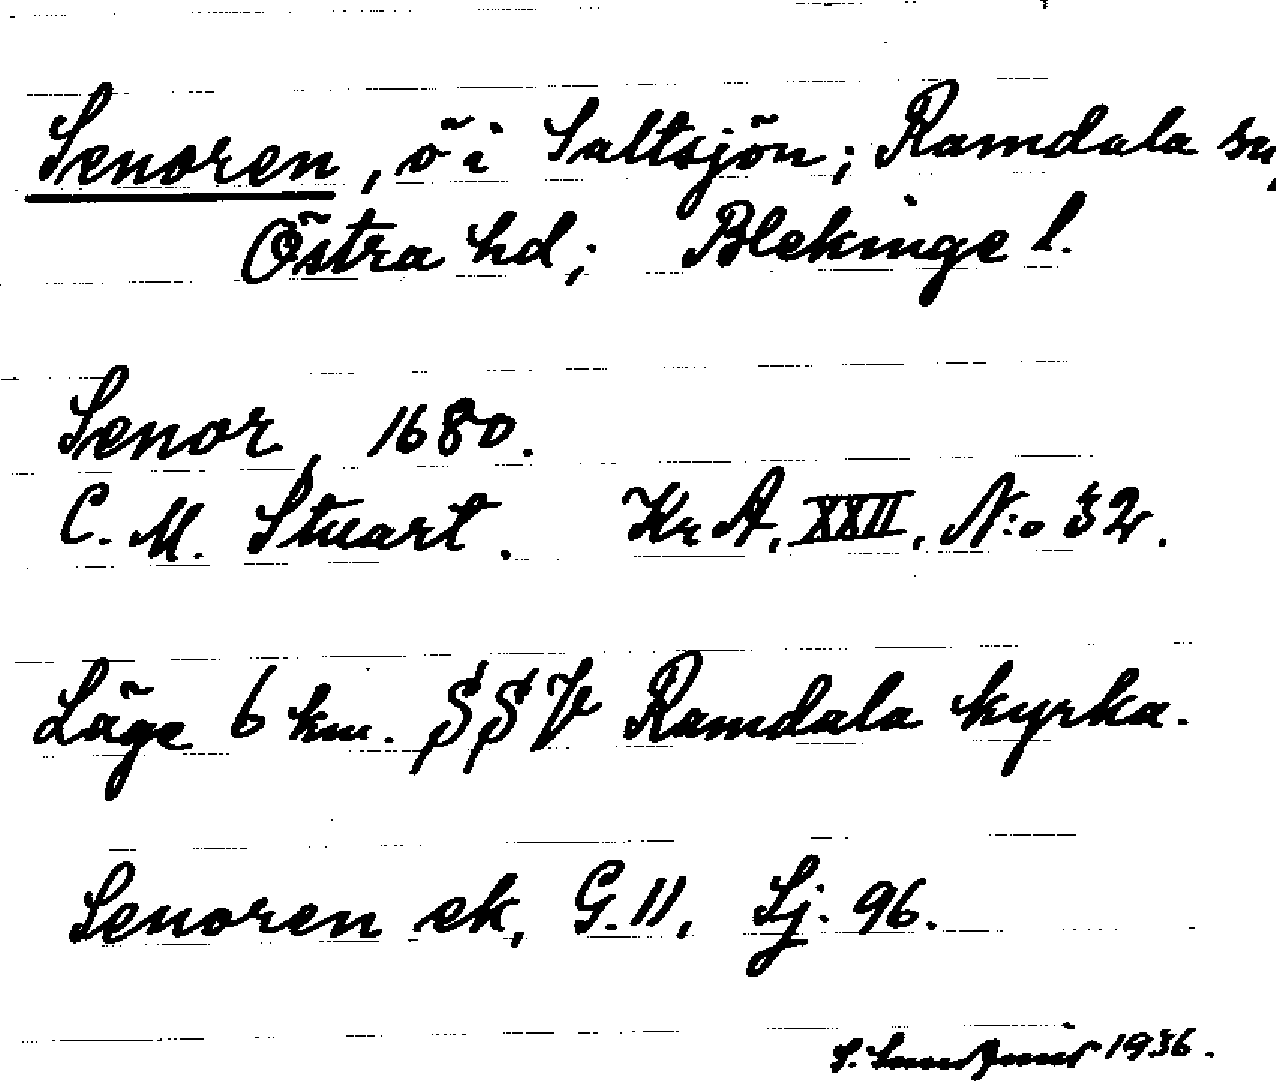 Senoren, ö i Saltsjön; Ramdala sn,
Östra hd; Blekinge l.
Senor 1680.
C. M. Stuart. Kr A, XXII, N:o 32.
Läge 6 km. SSV Ramdala kyrka.
Senoren ek, G. 11, Sj. 96.
1936.